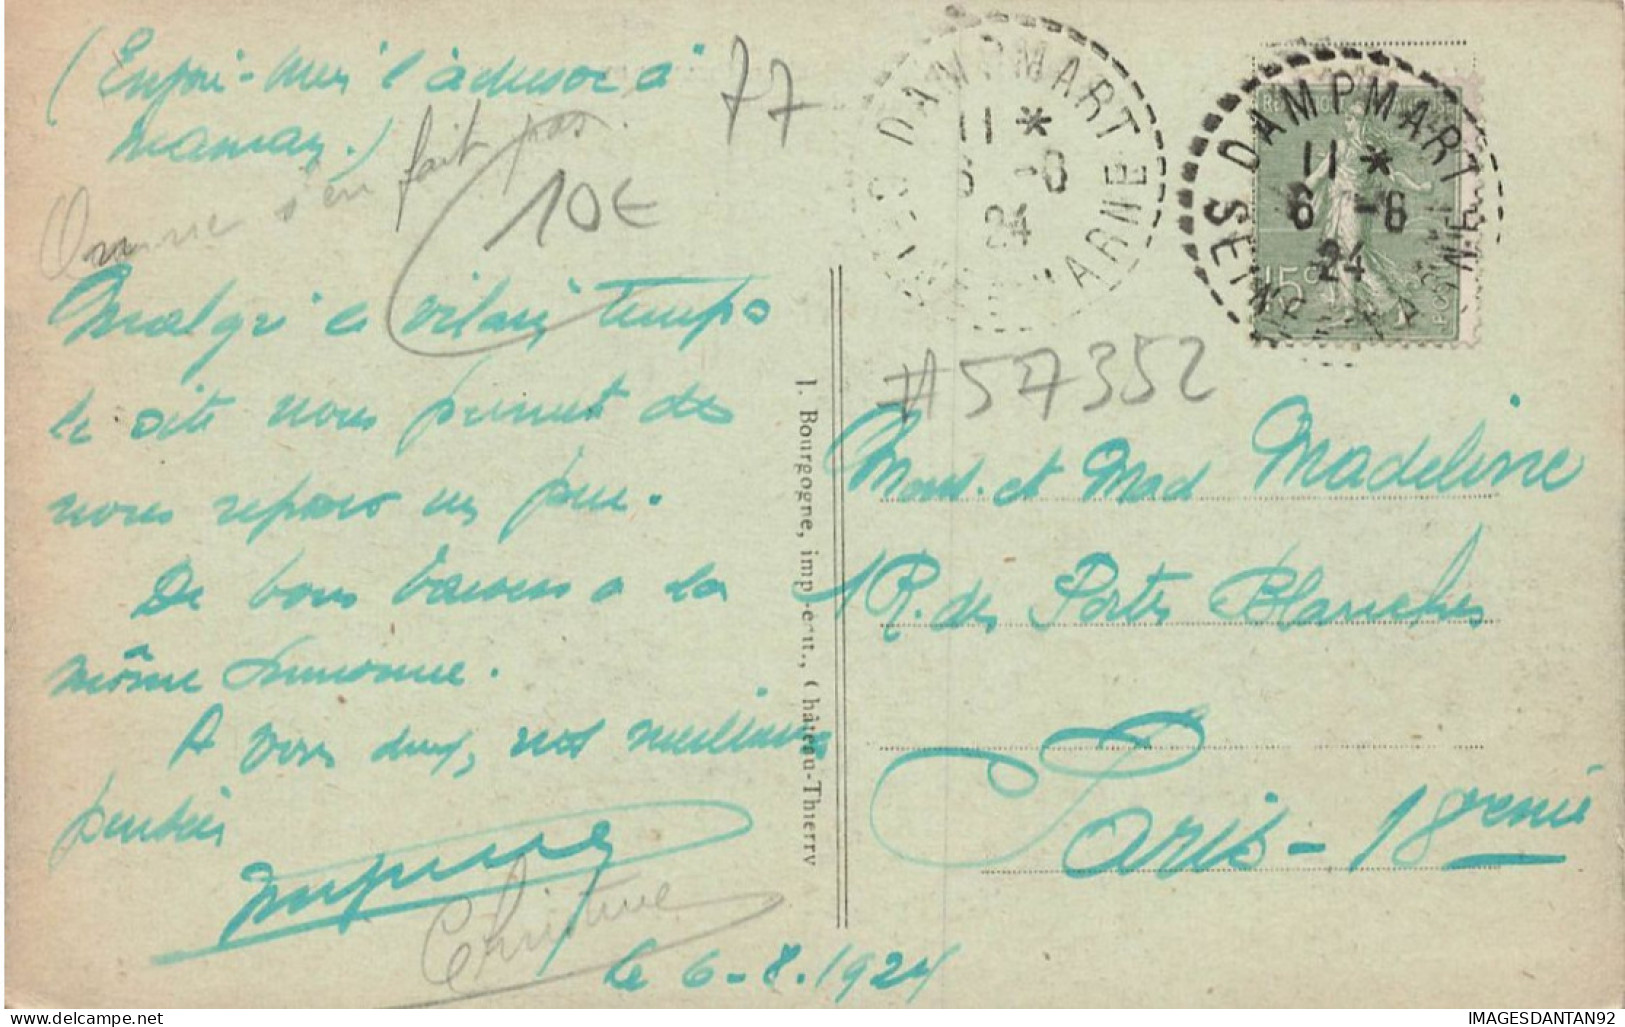 à
maman.)
s'en fait pas.
77
10€
Malgré ce vilain temps
le site nous permet de
nous reposer un peu.
De bons baisers à la
môme
A vous deux, nos meilleures
pensées
Christiane
le 6-8.1924
J. Bourgogne, imp.-édit., Château-Thierry
DAMPMART
11 *
6 -8
24
SEINE ET MARNE
DAMPMART
11 *
6 -8
24
SEINE ET MARNE
15c
#57352
et Mad Madeline
1 R. des Portes Blanches
Paris - 18eme
delcampe.net
IMAGESDANTAN92